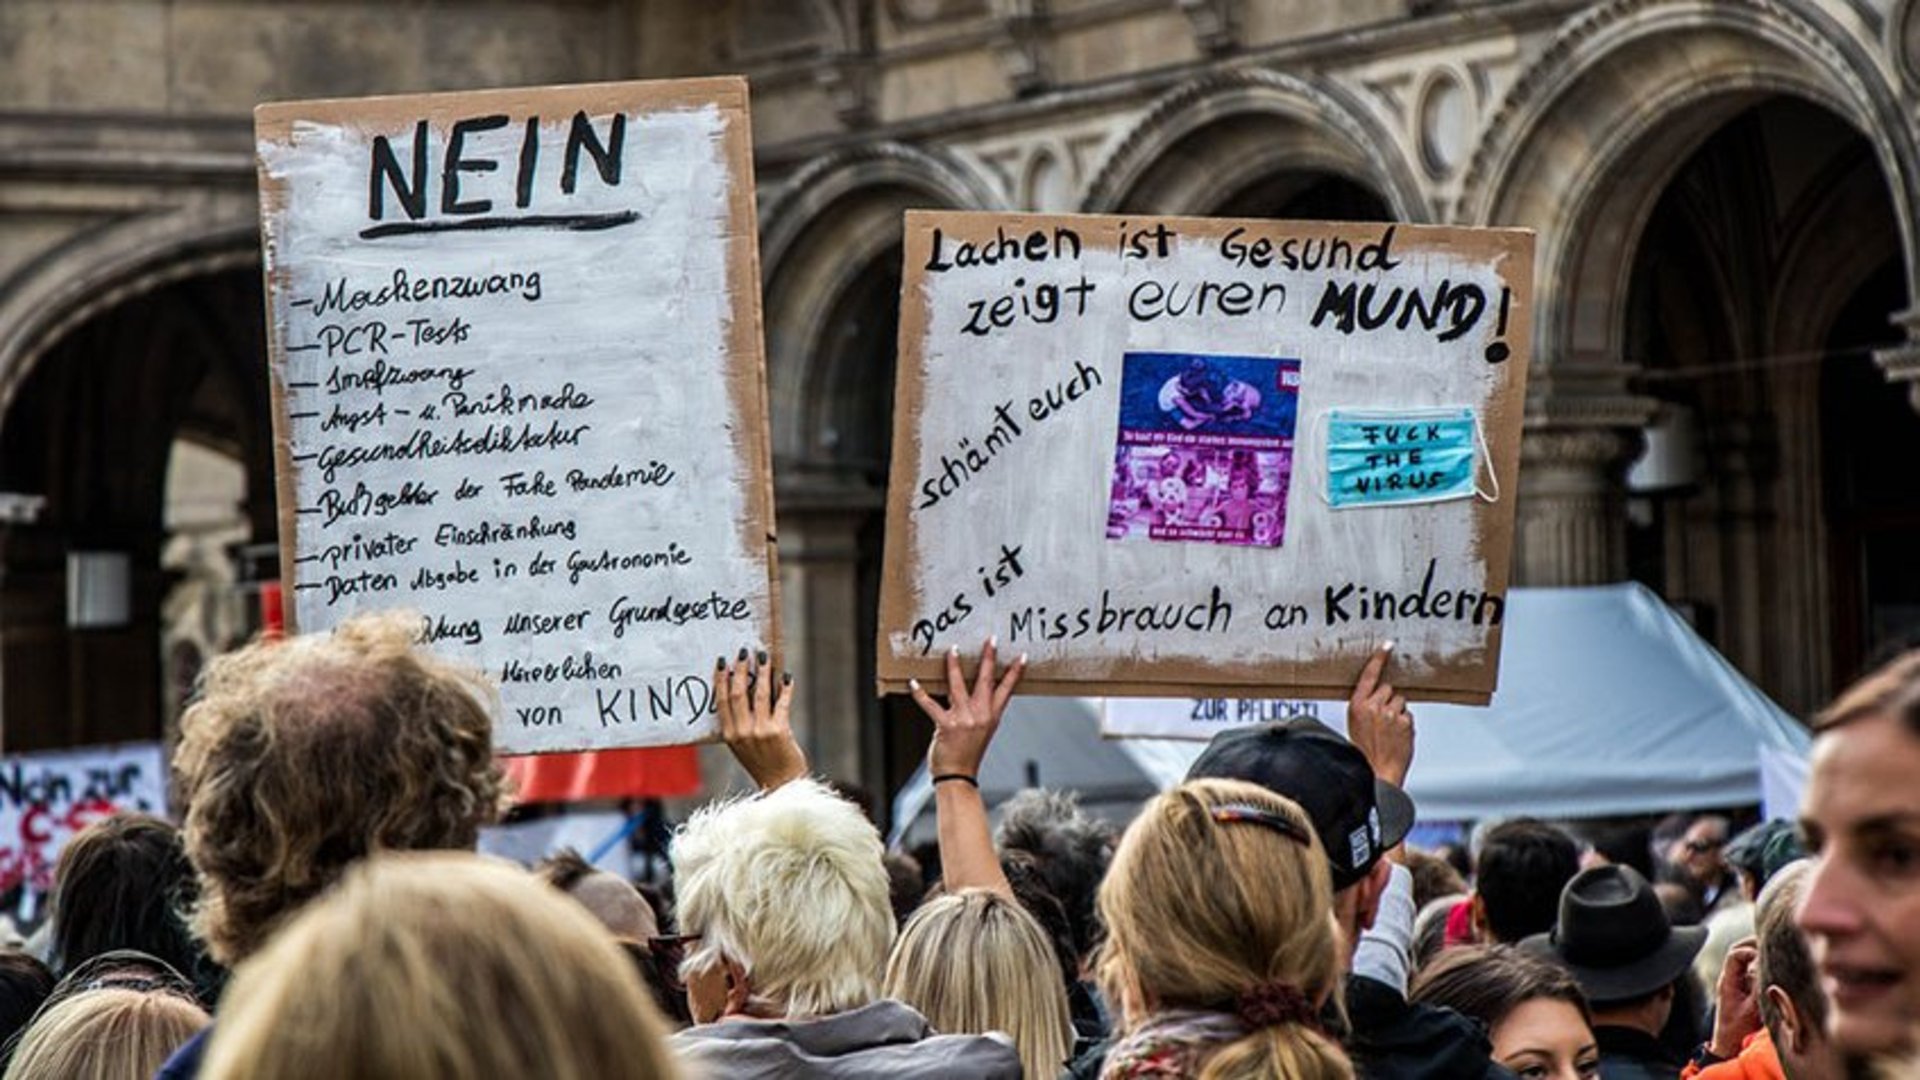 NEIN
- Maskenzwang
- PCR-Tests
- Impfzwang
- Angst- u. Panikmache
- Gesundheitsdiktatur
- Bußgelder der Fake Pandemie
- privater Einschränkung
- Daten Abgabe in der Gastronomie
unserer Grundgesetze
körperlichen
von KIND
Lachen ist Gesund
zeigt euren MUND!
schämt euch
FUCK
THE
VIRUS
Das ist
Missbrauch an Kindern
ZUR PFLICHT!
Nein zur